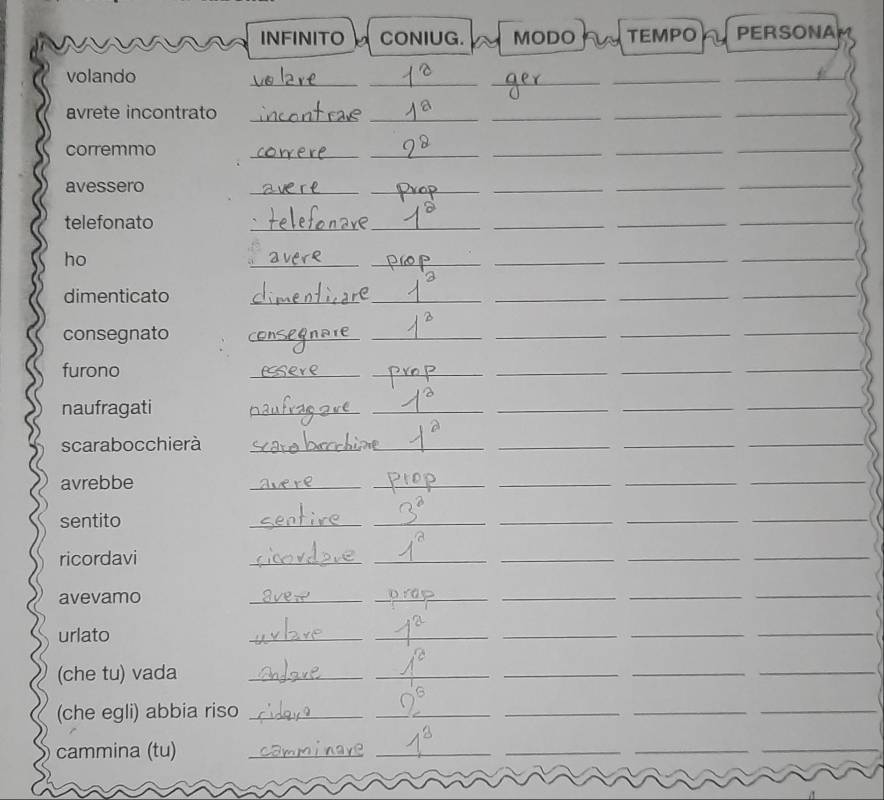 INFINITO CONIUG. MODO TEMPO PERSONA
volando volare 1ª ger
avrete incontrato incontrare 1ª
corremmo correre 2ª
avessero avere prop
telefonato telefonare 1ª
ho avere prop
dimenticato dimenticare 1ª
consegnato consegnare 1ª
furono essere prop
naufragati naufragare 1ª
scarabocchierà 1ª
avrebbe avere prop
sentito sentire 3ª
ricordavi ricordare 1ª
avevamo avere prop
urlato urlare 1ª
(che tu) vada andare 1ª
(che egli) abbia riso 2ª
cammina (tu) camminare 1ª